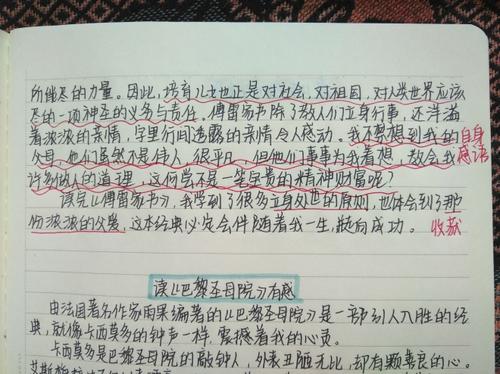 所能尽的力量。因此，培育儿女也正是对社会，对祖国，对人类世界应该
尽的一项神圣的义务与责任。傅雷家书除了教人们立身行事，还洋溢
着浓浓的亲情，字里行间透露的亲情令人感动。我不想想到我的自身
父母，他们虽然不是伟人，很平凡，但他们事事为我着想，教会我感语
许多做人的道理，这何尝不是一笔宝贵的精神财富呢？
读完《傅雷家书》，我学到了很多立身处世的原则，也体会到了那
份浓浓的父爱，这本经典必定会伴随着我一生，驶向成功。收获
读《巴黎圣母院》有感
由法国著名作家雨果编著的《巴黎圣母院》是一部引人入胜的经
典，就像卡西莫多的钟声一样，震撼着我的心灵。
卡西莫多是巴黎圣母院的敲钟人，外表丑陋无比，却有颗善良的心。